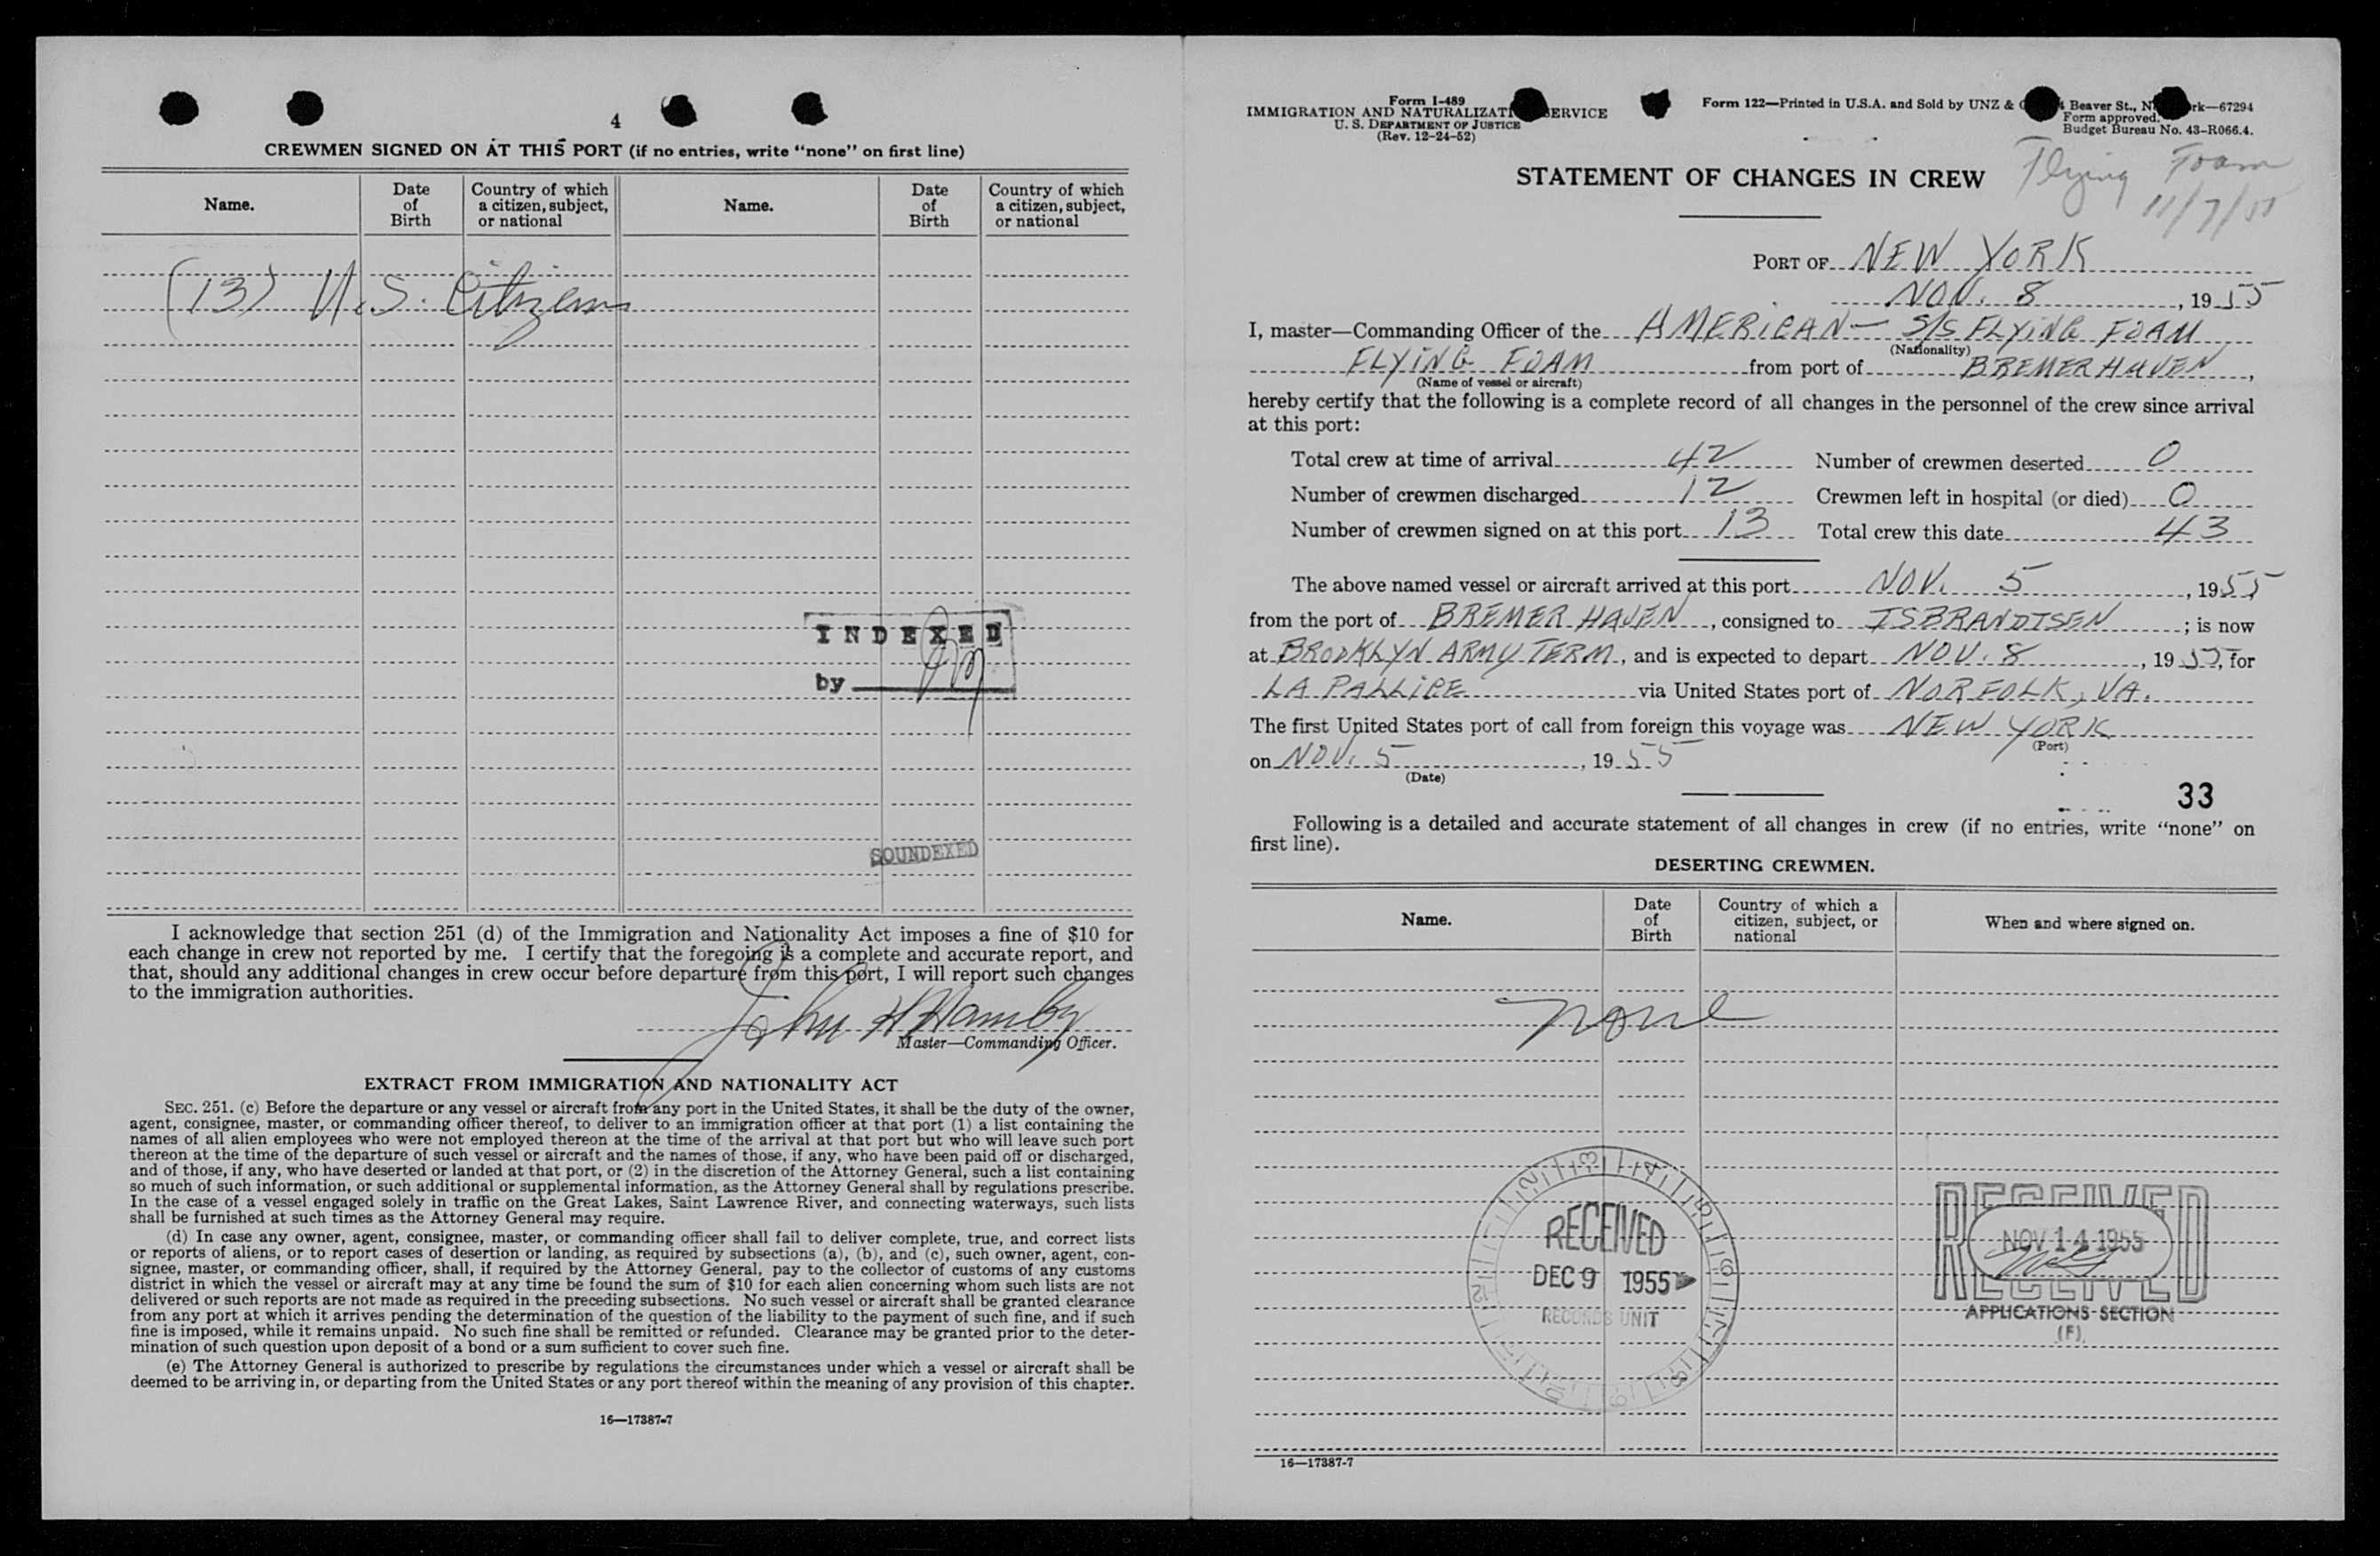 4
CREWMEN SIGNED ON AT THIS PORT (if no entries, write "none" on first line)
Name.
Date of Birth
Country of which a citizen, subject, or national
Name.
Date of Birth
Country of which a citizen, subject, or national
(13) U.S. Citizens
INDEXED
by
SOUNDEXED
I acknowledge that section 251 (d) of the Immigration and Nationality Act imposes a fine of $10 for
each change in crew not reported by me. I certify that the foregoing is a complete and accurate report, and
that, should any additional changes in crew occur before departure from this port, I will report such changes
to the immigration authorities.
John H Hamby
Master—Commanding Officer.
EXTRACT FROM IMMIGRATION AND NATIONALITY ACT
SEC. 251. (c) Before the departure or any vessel or aircraft from any port in the United States, it shall be the duty of the owner,
agent, consignee, master, or commanding officer thereof, to deliver to an immigration officer at that port (1) a list containing the
names of all alien employees who were not employed thereon at the time of the arrival at that port but who will leave such port
thereon at the time of the departure of such vessel or aircraft and the names of those, if any, who have been paid off or discharged,
and of those, if any, who have deserted or landed at that port, or (2) in the discretion of the Attorney General, such a list containing
so much of such information, or such additional or supplemental information, as the Attorney General shall by regulations prescribe.
In the case of a vessel engaged solely in traffic on the Great Lakes, Saint Lawrence River, and connecting waterways, such lists
shall be furnished at such times as the Attorney General may require.
(d) In case any owner, agent, consignee, master, or commanding officer shall fail to deliver complete, true, and correct lists
or reports of aliens, or to report cases of desertion or landing, as required by subsections (a), (b), and (c), such owner, agent, con-
signee, master, or commanding officer, shall, if required by the Attorney General, pay to the collector of customs of any customs
district in which the vessel or aircraft may at any time be found the sum of $10 for each alien concerning whom such lists are not
delivered or such reports are not made as required in the preceding subsections. No such vessel or aircraft shall be granted clearance
from any port at which it arrives pending the determination of the question of the liability to the payment of such fine, and if such
fine is imposed, while it remains unpaid. No such fine shall be remitted or refunded. Clearance may be granted prior to the deter-
mination of such question upon deposit of a bond or a sum sufficient to cover such fine.
(e) The Attorney General is authorized to prescribe by regulations the circumstances under which a vessel or aircraft shall be
deemed to be arriving in, or departing from the United States or any port thereof within the meaning of any provision of this chapter.
16—17387-7
Form I-489
IMMIGRATION AND NATURALIZATI SERVICE
U. S. DEPARTMENT OF JUSTICE
(Rev. 12-24-52)
Form 122—Printed in U.S.A. and Sold by UNZ & Beaver St., N rk—67294
Form approved.
Budget Bureau No. 43-R066.4.
Flying Foam
11/7/55
STATEMENT OF CHANGES IN CREW
PORT OF NEW YORK
NOV. 8, 1955
I, master—Commanding Officer of the AMERICAN — S/S FLYING FOAM
(Nationality)
FLYING FOAM from port of BREMERHAVEN,
(Name of vessel or aircraft)
hereby certify that the following is a complete record of all changes in the personnel of the crew since arrival
at this port:
Total crew at time of arrival 42 Number of crewmen deserted 0
Number of crewmen discharged 12 Crewmen left in hospital (or died) 0
Number of crewmen signed on at this port 13 Total crew this date 43
The above named vessel or aircraft arrived at this port NOV. 5, 1955
from the port of BREMERHAVEN, consigned to ISBRANDTSEN; is now
at BROOKLYN ARMY TERM., and is expected to depart NOV. 8, 1955, for
LA PALLICE via United States port of NORFOLK, VA.
The first United States port of call from foreign this voyage was NEW YORK
(Port)
on NOV. 5, 1955
(Date)
33
Following is a detailed and accurate statement of all changes in crew (if no entries, write "none" on
first line).
DESERTING CREWMEN.
Name.
Date of Birth
Country of which a citizen, subject, or national
When and where signed on.
none
RECEIVED
DEC 9 1955
RECORDS UNIT
RECEIVED
NOV 14 1955
RECEIVED
APPLICATIONS SECTION
(F)
16—17387-7